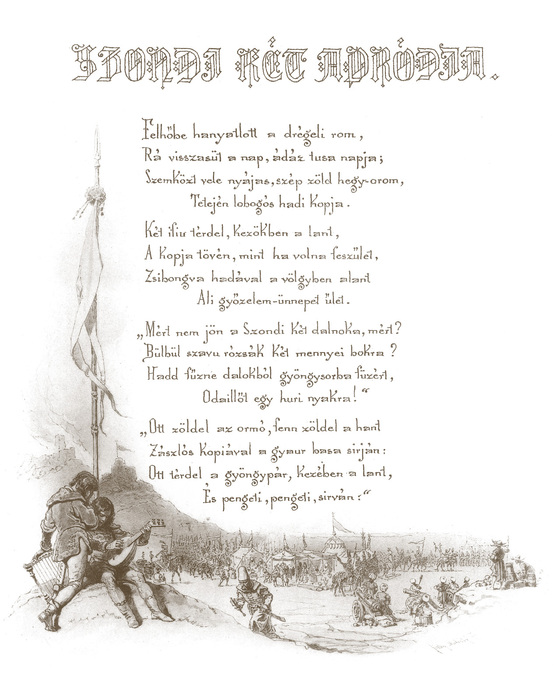 SZONDI KÉT APRÓDJA.
Felhőbe hanyatlott a drégeli rom,
Rá visszasüt a nap, ádáz tusa napja;
Szemközt vele nyájas, szép zöld hegy-orom,
Tetején lobogós hadi kopja.
Két ifiu térdel, kezökben a lant,
A kopja tövén, mint ha volna feszület,
Zsibongva hadával a völgyben alant
Ali győzelem-ünnepet űlet.
„Mért nem jön a Szondi két dalnoka, mért?
Bülbül szavu rózsák két mennyei bokra?
Hadd fűzne dalokból gyöngysorba füzért,
Odaillőt egy huri nyakra!“
„Ott zöldel az ormó, fenn zöldel a hant
Zászlós kópiával a gyaur basa sirján:
Ott térdel a gyöngypár, kezében a lant,
És pengeti, pengeti, sirván:“